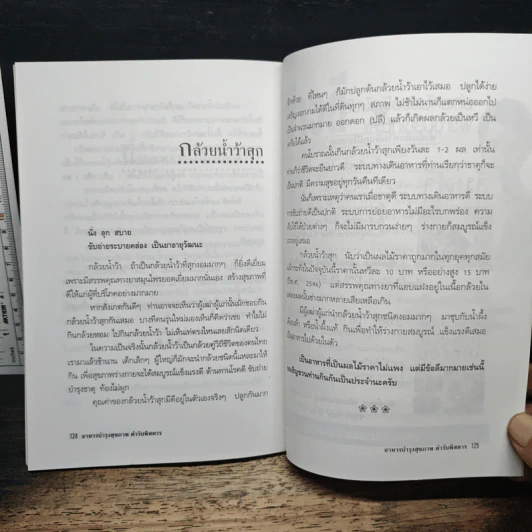 กล้วยน้ำว้าสุก
นั่ง ลุก สบาย
ขับถ่ายระบายคล่อง เป็นยาอายุวัฒนะ
กล้วยน้ำว้า ถ้าเป็นกล้วยน้ำว้าที่สุกงอมมากๆ ก็ยิ่งดีเยี่ยม
เพราะมีสรรพคุณทางยาสมุนไพรยอดเยี่ยมมากนั่นเอง สร้างสุขภาพที่
ดีให้แก่ผู้ที่บริโภคอย่างมากมาย
หากสังเกตกันดีๆ ท่านอาจจะเห็นว่าผู้เฒ่าผู้แก่นั้นมักชอบกิน
กล้วยน้ำว้าสุกกันเสมอ บางทีคนรุ่นใหม่มองเห็นก็คิดว่าเชย ทำไมไม่
กินกล้วยหอม ไปกินกล้วยน้ำว้า ไม่เห็นเท่ตรงไหนเลยสักนิดเดียว
ในความเป็นจริงนั้นกล้วยน้ำว้าเป็นกล้วยคู่วิถีชีวิตของคนไทย
เรามาแล้วช้านาน เด็กเล็กๆ ผู้ใหญ่ก็มักจะนำกล้วยชนิดนี้แหละมาให้
กิน เพื่อสุขภาพร่างกายจะได้สมบูรณ์แข็งแรงดี ต้านทานโรคดี ขับถ่าย
บำรุงธาตุ ท้องไม่ผูก
คุณค่าของกล้วยน้ำว้าสุกมีดีอยู่ในตัวเองจริงๆ ปลูกกันมาก
124 อาหารบำรุงสุขภาพ ตำรับพิสดาร
ที่ไหนๆ ก็มักปลูกต้นกล้วยน้ำว้าเอาไว้เสมอ ปลูกได้ง่าย
งอกงามได้ดีในที่ดินทุกๆ สภาพ ไม่ช้าไม่นานก็แตกหน่อออกไป
เป็นจำนวนมากมาย ออกดอก (ปลี) แล้วก็เกิดผลกล้วยเป็นหวี เป็น
คนโบราณนั้นกินกล้วยน้ำว้าสุกเพียงวันละ 1-2 ผล เท่านั้น
ชีวิตจะยืนยาวดี ระบบทางเดินอาหารที่ท่านเรียกว่าธาตุก็จะ
เป็นปกติ มีความสุขอยู่ทุกวันคืนทีเดียว
นั่นก็เพราะเหตุว่าคนเราเมื่อธาตุดี ระบบทางเดินอาหารดี ระบบ
การขับถ่ายดีเป็นปกติ ระบบการย่อยอาหารไม่มีอะไรบกพร่อง ความ
เจ็บไข้ได้ป่วยต่างๆ ก็จะไม่มีมารบกวนง่ายๆ ร่างกายก็สมบูรณ์แข็ง
แรงอยู่เสมอ
กล้วยน้ำว้าสุก นับว่าเป็นผลไม้ราคาถูกมากในทุกยุคทุกสมัย
แม้กระทั่งในปัจจุบันนี้ราคานั้นหวีละ 10 บาท หรืออย่างสูง 15 บาท
(ปี พ.ศ. 2546) แต่สรรพคุณทางยาที่แอบแฝงอยู่ในเนื้อกล้วยใน
ผลกล้วยนั้นช่างมากหลายเสียเหลือเกิน
มีผู้เฒ่าผู้แก่นำกล้วยน้ำว้าสุกงอมมากๆ มาชุบกินกับน้ำผึ้ง
หรือน้ำผึ้งแท้ กินเพื่อทำให้ร่างกายสมบูรณ์ แข็งแรงดีเสมอ
เป็นอาหารที่เป็นผลไม้ราคาไม่แพง แต่มีข้อดีมากมายเช่นนี้
ขอเชิญชวนท่านกินกันเป็นประจำนะครับ
อาหารบำรุงสุขภาพ ตำรับพิสดาร 125